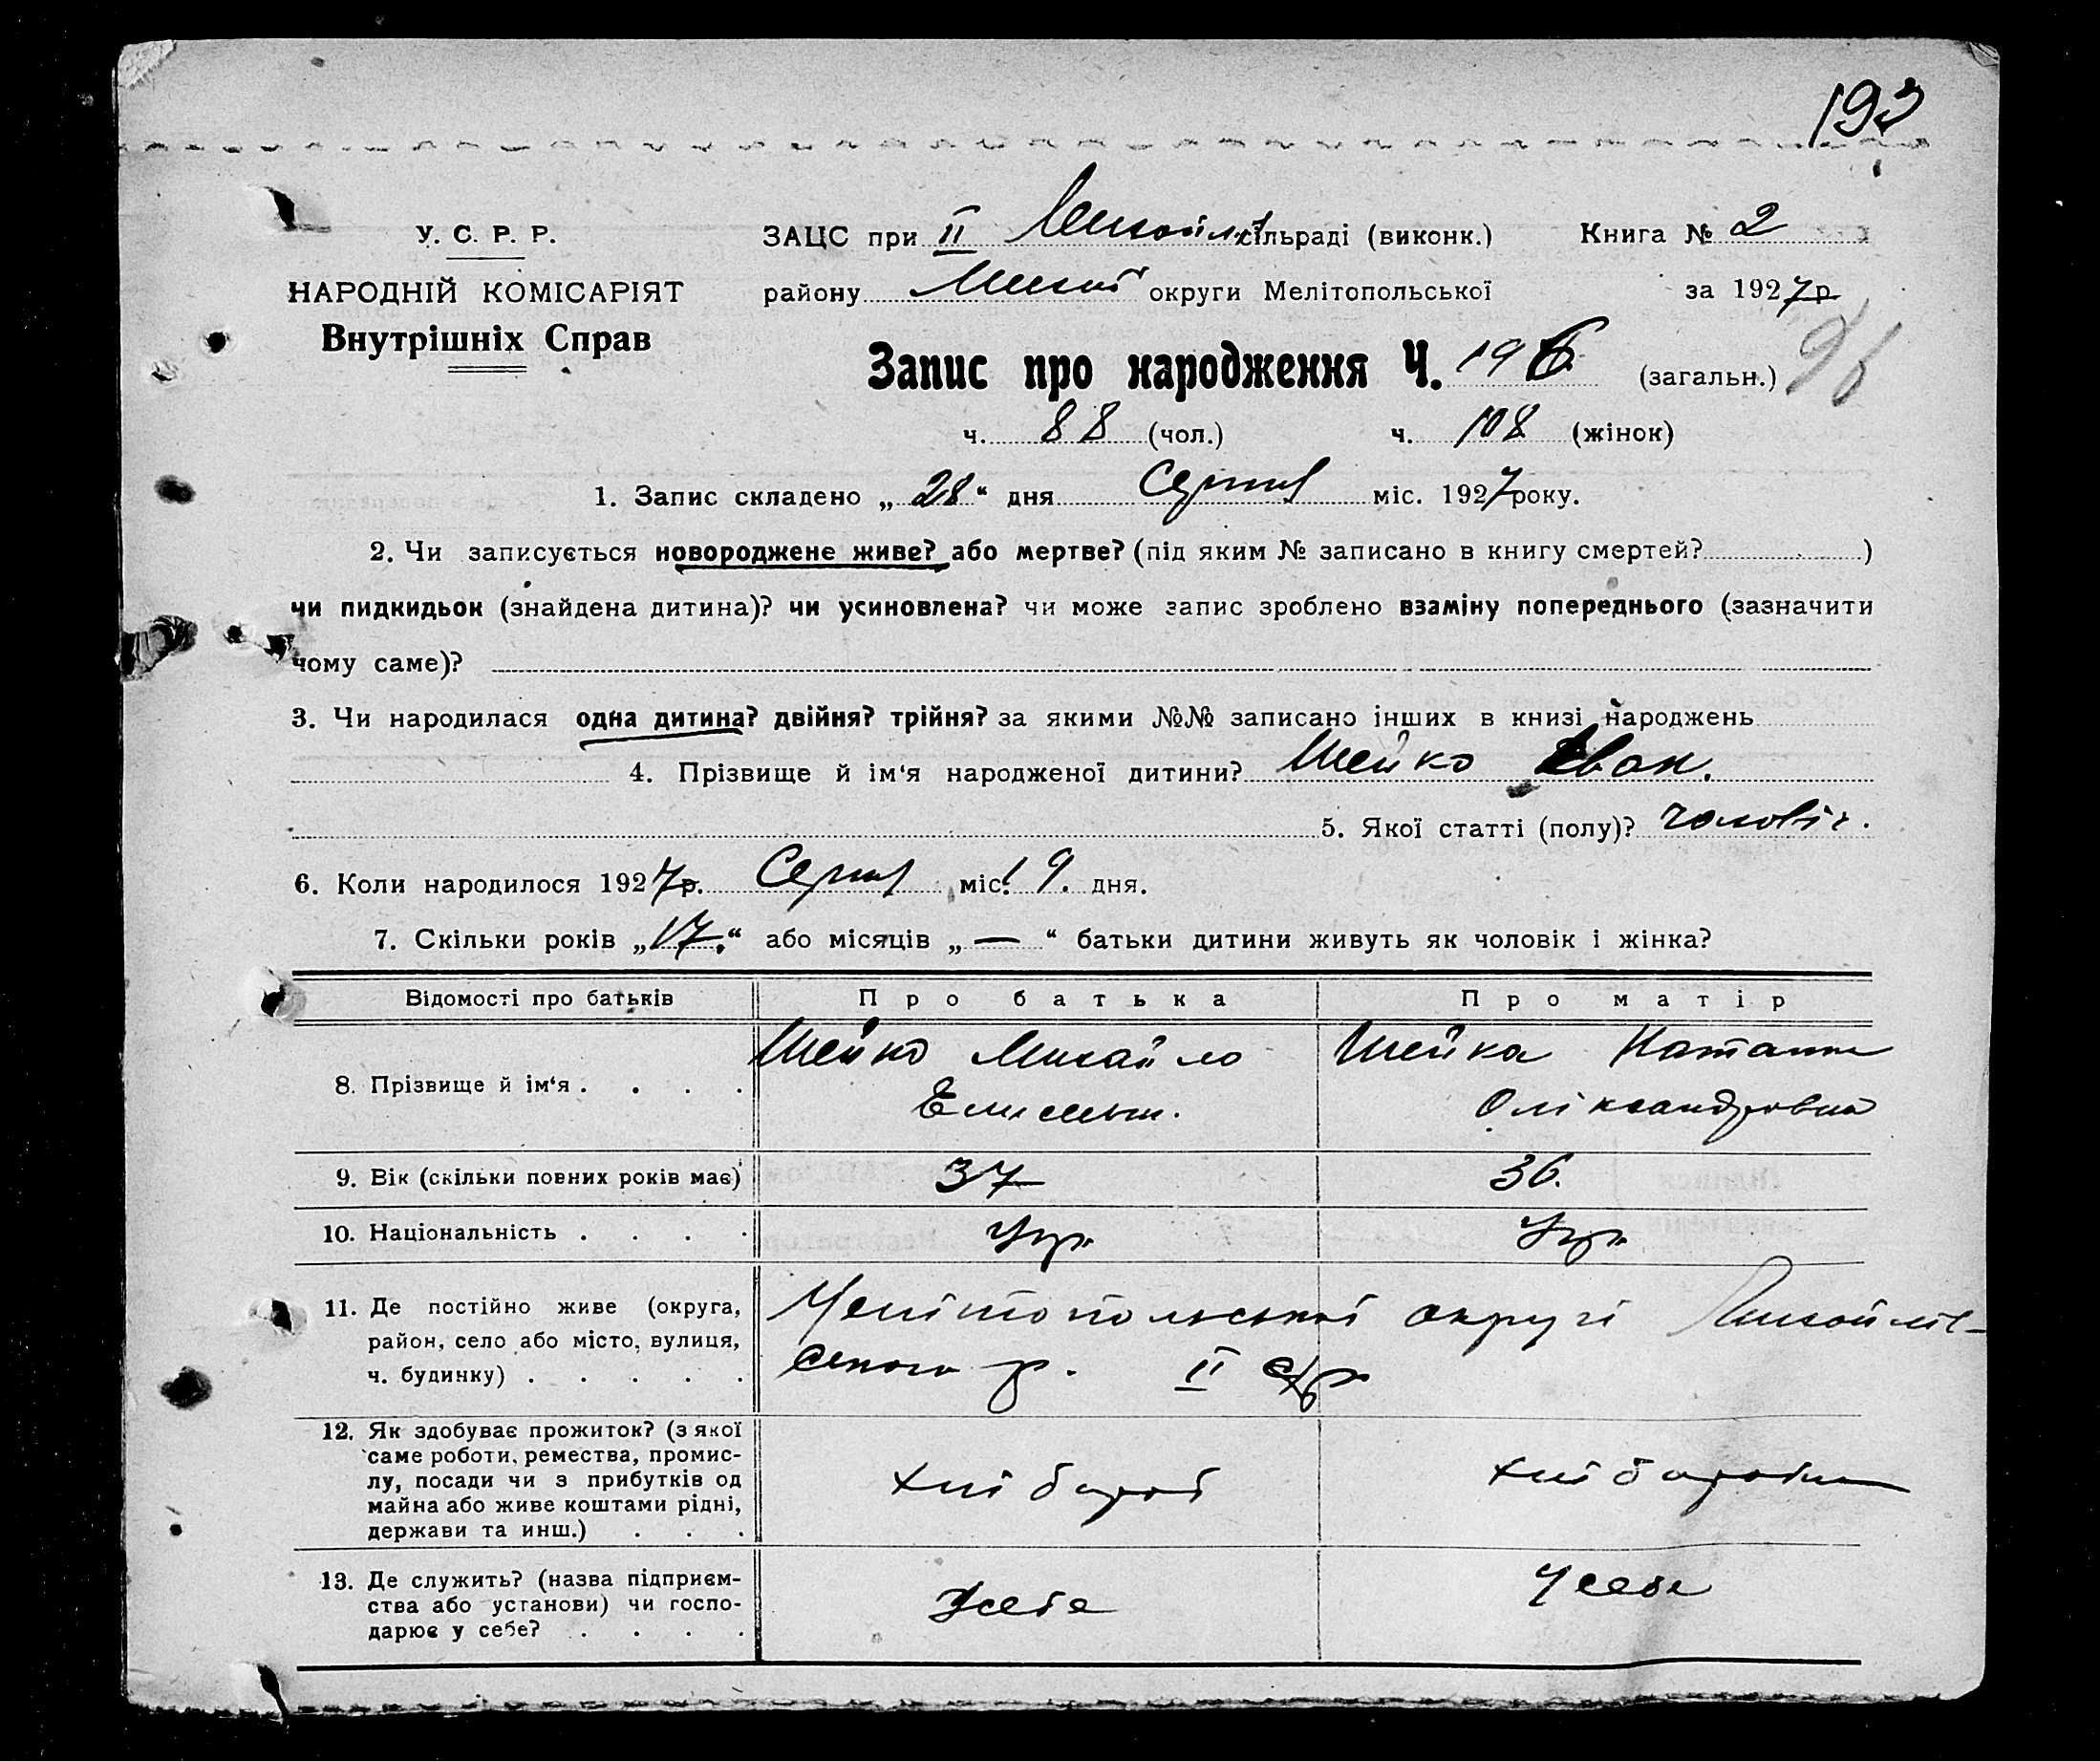 193
У. С. Р. Р.
НАРОДНІЙ КОМІСАРІЯТ
Внутрішніх Справ
ЗАЦС при II Михайлів сільраді (виконк.) Книга № 2
району Михай округи Мелітопольської за 1927 р.
Запис про народження Ч. 196 (загальн.) 96
ч. 88 (чол.) ч. 108 (жінок)
1. Запис складено „28“ дня Серпня міс. 1927 року.
2. Чи записується новороджене живе? або мертве? (під яким № записано в книгу смертей? )
чи пидкидьок (знайдена дитина)? чи усиновлена? чи може запис зроблено взаміну попереднього (зазначити
чому саме)?
3. Чи народилася одна дитина? двійня? трійня? за якими №№ записано інших в книзі народжень
4. Прізвище й ім‘я народженої дитини? Шейко Іван.
5. Якої статті (полу)? чоловіч.
6. Коли народилося 1927 р. Серпня міс. 19. дня.
7. Скільки років „17.“ або місяців „—“ батьки дитини живуть як чоловік і жінка?
Відомості про батьків Про батька Про матір
8. Прізвище й ім‘я . . . . Шейко Михайло Шейка Наталия
Олександровна
9. Вік (скільки повних років має) 37 36.
10. Національність . . . . Укр. Укр.
11. Де постійно живе (округа, Мелітопольської округи Михайлів-
район, село або місто, вулиця,
ч. будинку) . . . . . ського р. II с/р
12. Як здобуває прожиток? (з якої
саме роботи, ремества, промис-
лу, посади чи з прибутків од хлібороб хлібороб
майна або живе коштами рідні,
держави та инш.) . . .
13. Де служить? (назва підприєм- У себе
ства або установи) чи госпо- У себе
дарює у себе? . . . .